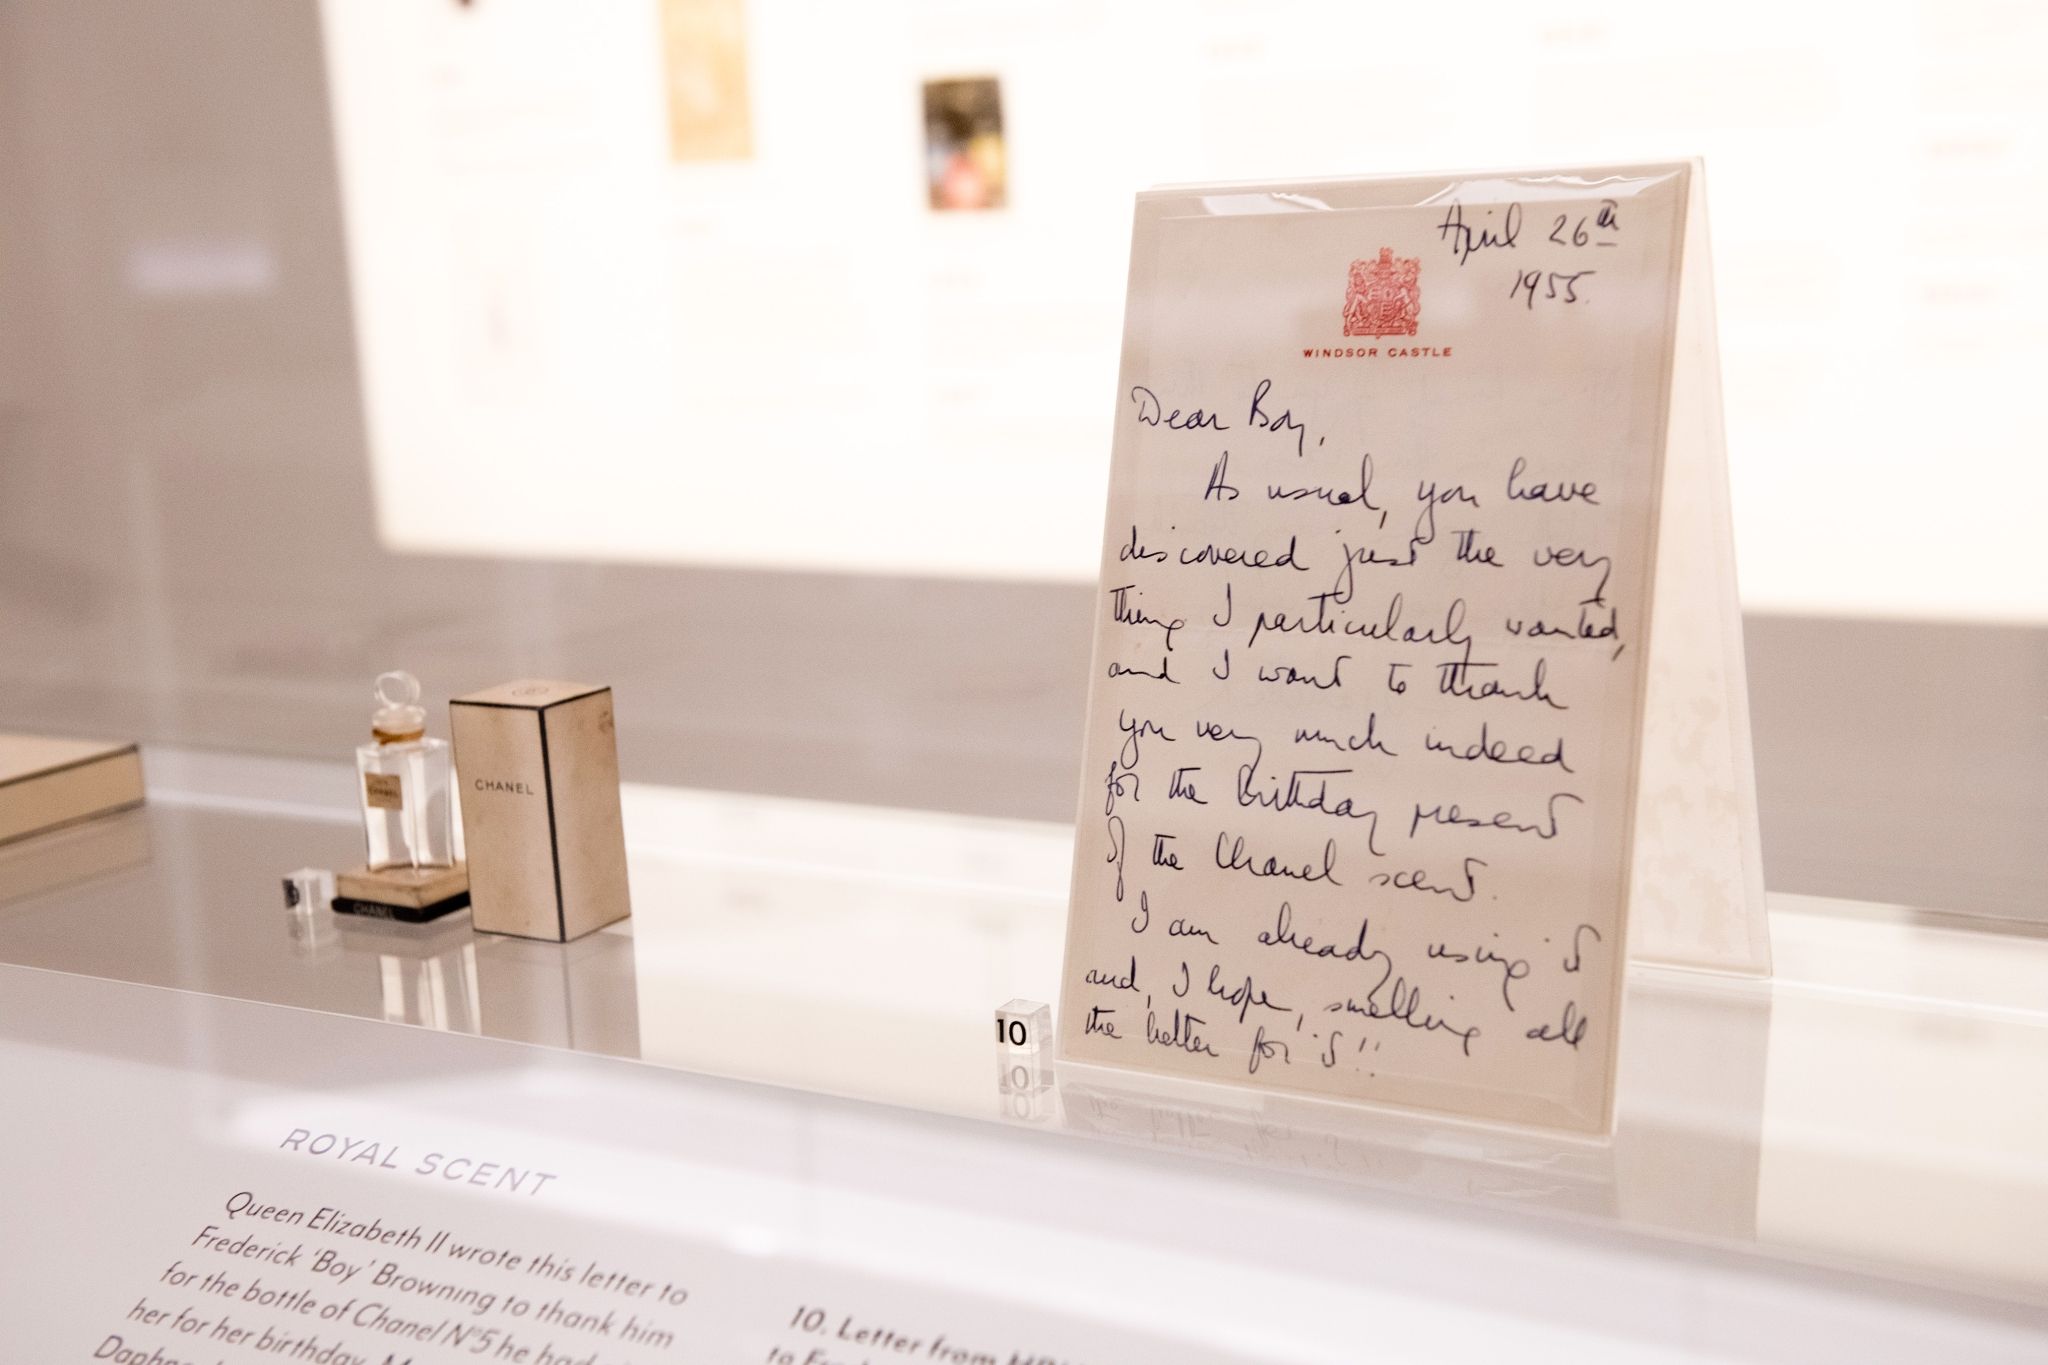 April 26th
1955.
WINDSOR CASTLE
Dear Boy,
As usual, you have
discovered just the very
thing I particularly wanted,
and I want to thank
you very much indeed
for the birthday present
of the Chanel scent.
I am already using it
and, I hope, smelling all
the better for it!!
CHANEL
CHANEL
CHANEL
10
ROYAL SCENT
Queen Elizabeth II wrote this letter to
Frederick ‘Boy’ Browning to thank him
for the bottle of Chanel N°5 he had
her for her birthday.
10. Letter from
to